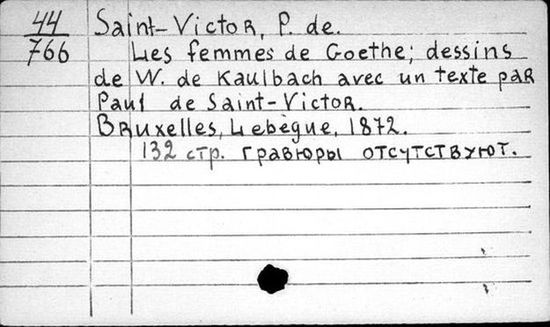 44
766
Saint-Victor, P. de.
Les femmes de Goethe; dessins
de W. de Kaulbach avec un texte par
Paul de Saint-Victor.
Bruxelles, Lebègue, 1872.
132 стр. гравюры отсутствуют.